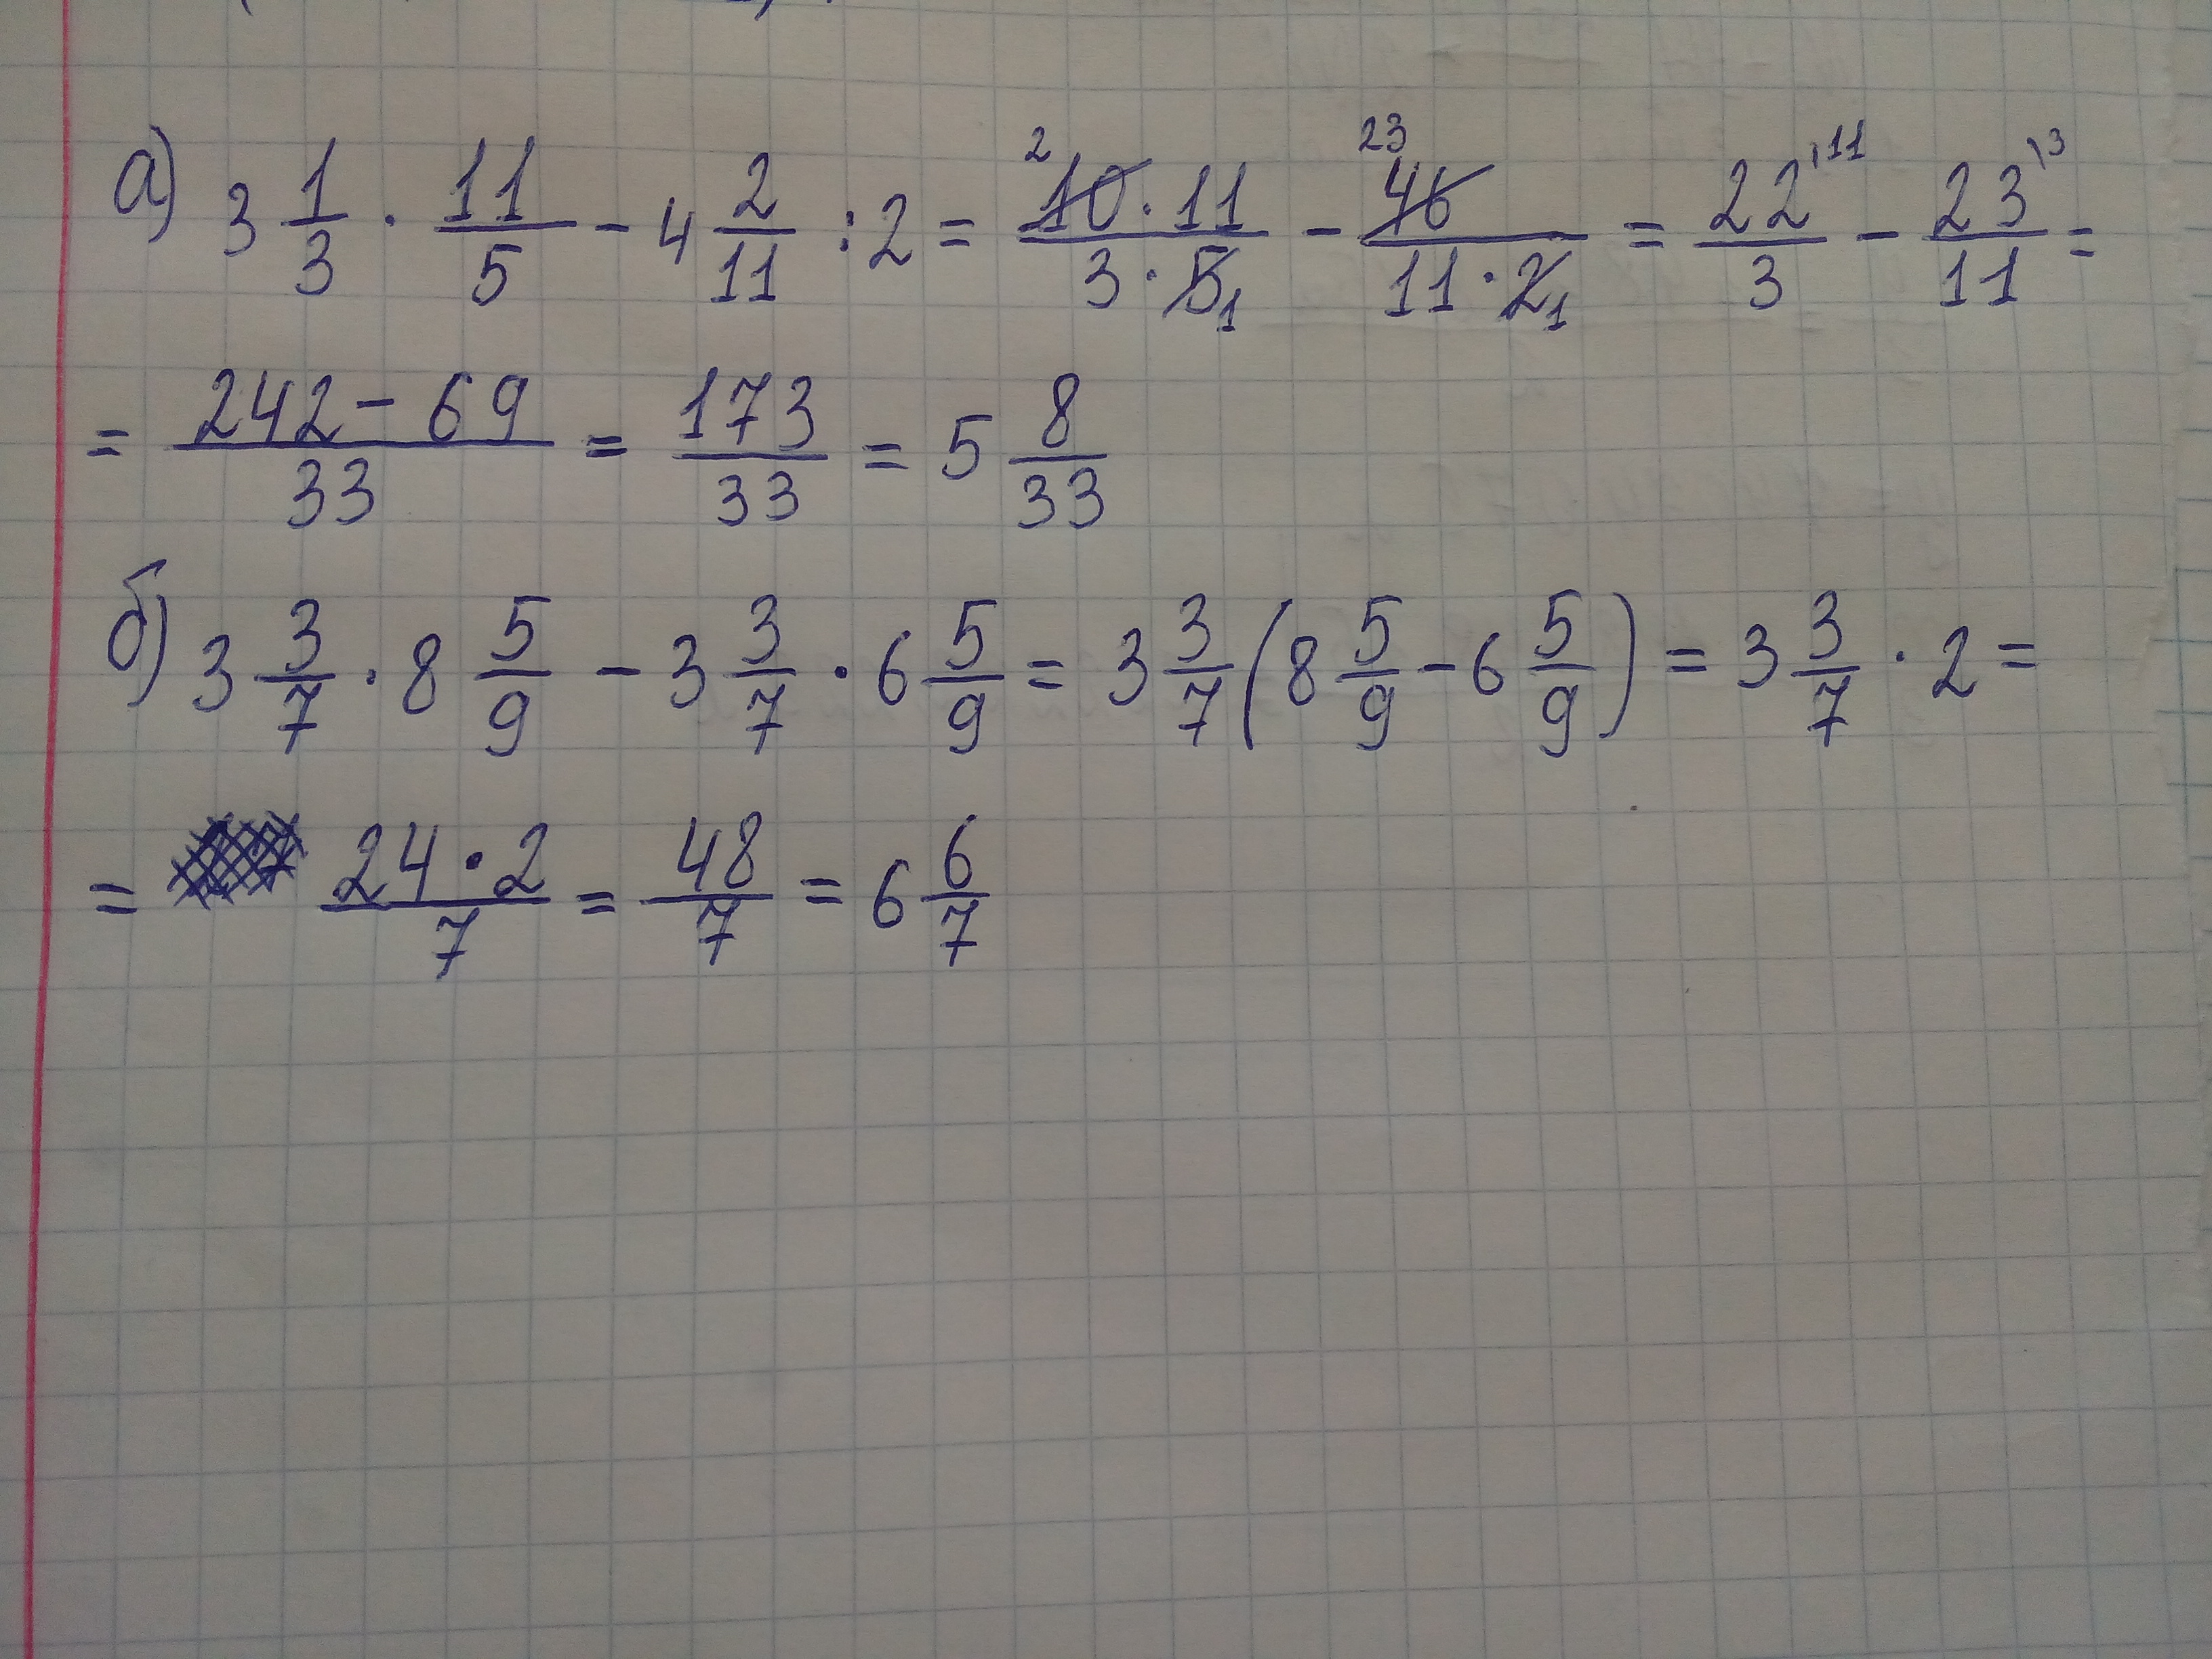 а) 3 1/3 · 11/5 - 4 2/11 : 2 = 10·11/3·5 - 46/11·2 = 22/3 - 23/11 =
= 242 - 69/33 = 173/33 = 5 8/33
б) 3 3/7 · 8 5/9 - 3 3/7 · 6 5/9 = 3 3/7 (8 5/9 - 6 5/9) = 3 3/7 · 2 =
= 24·2/7 = 48/7 = 6 6/7